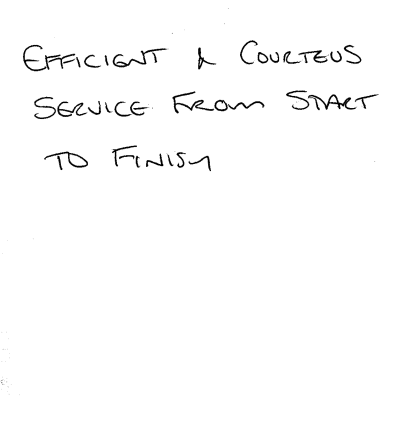 EFFICIENT & COURTEUS
SERVICE FROM START
TO FINISH